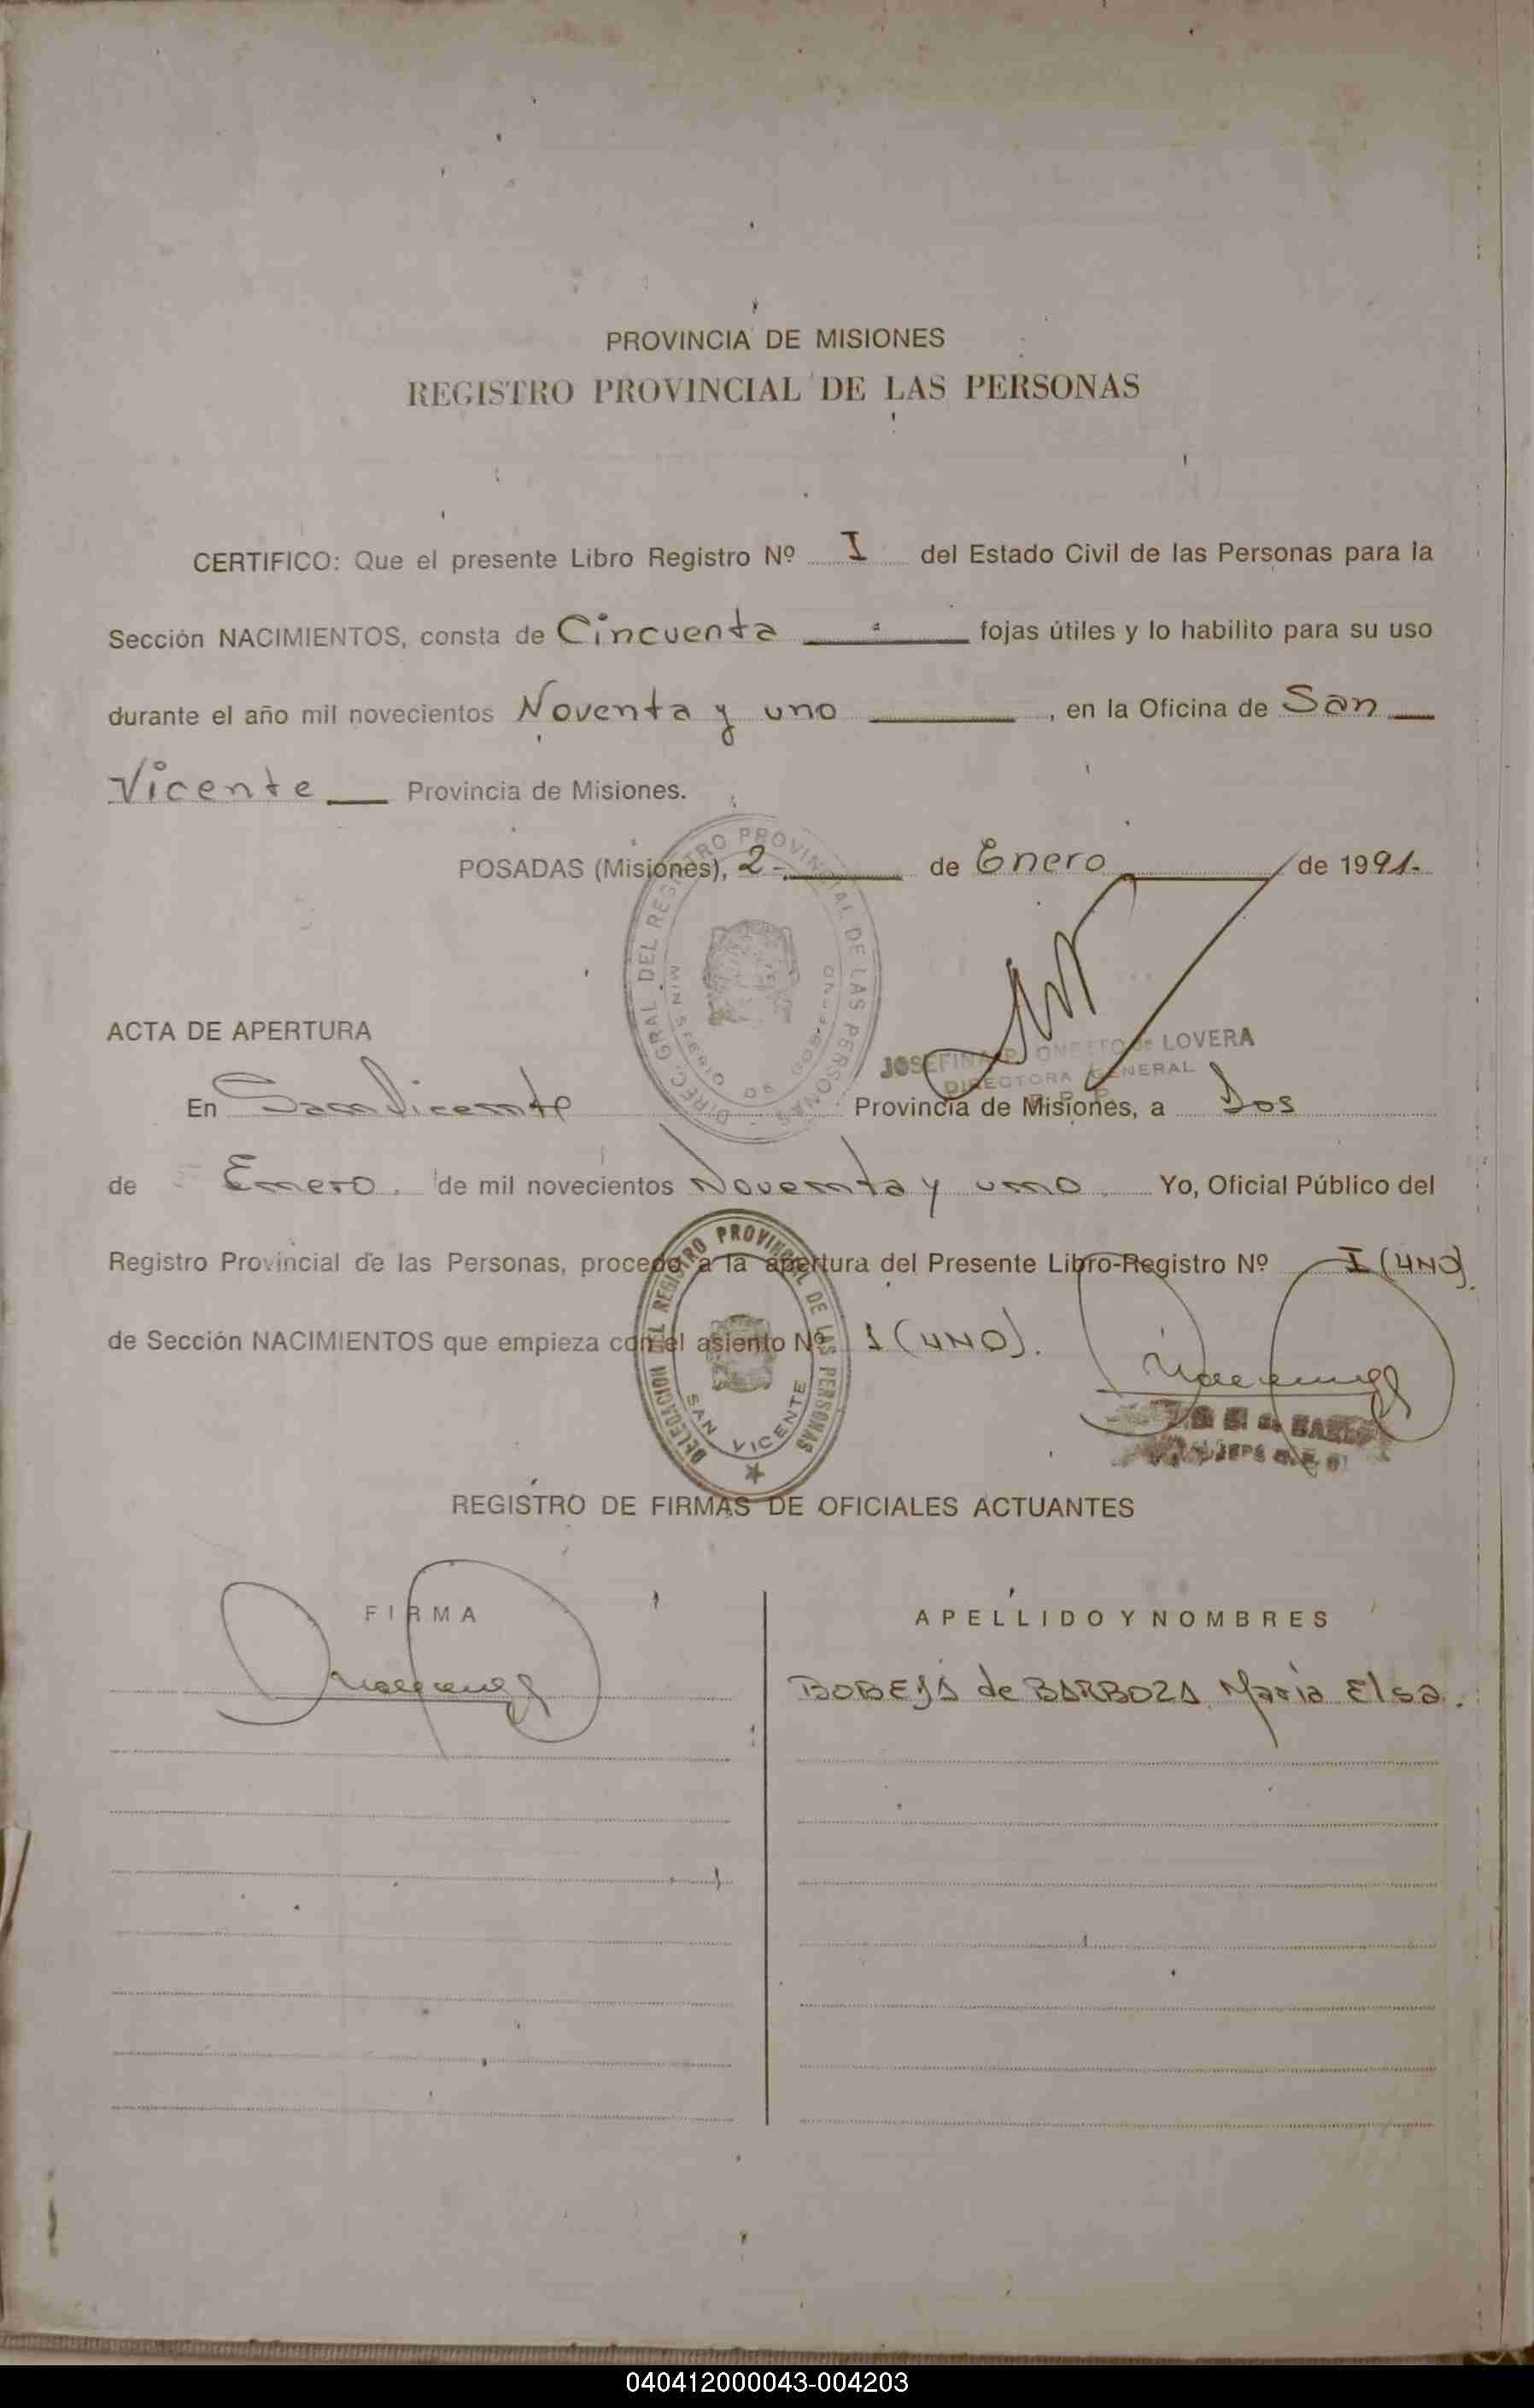 PROVINCIA DE MISIONES
REGISTRO PROVINCIAL DE LAS PERSONAS
CERTIFICO: Que el presente Libro Registro Nº I del Estado Civil de las Personas para la
Sección NACIMIENTOS, consta de Cincuenta fojas útiles y lo habilito para su uso
durante el año mil novecientos Noventa y uno, en la Oficina de San
Vicente Provincia de Misiones.
POSADAS (Misiones), 2 - de Enero de 1991.
DIREC. GRAL DEL REGISTRO PROVINCIAL DE LAS PERSONAS
MINISTERIO DE GOBIERNO
JOSEFINA LOVERA
DIRECTORA GENERAL
ACTA DE APERTURA
En San Vicente Provincia de Misiones, a Dos
de Enero. de mil novecientos Noventa y uno. Yo, Oficial Público del
Registro Provincial de las Personas, procedo a la apertura del Presente Libro-Registro Nº I (UNO)
de Sección NACIMIENTOS que empieza con el asiento Nº 1 (UNO).
DELEGACION DEL REGISTRO PROVINCIAL DE LAS PERSONAS
SAN VICENTE
REGISTRO DE FIRMAS DE OFICIALES ACTUANTES
FIRMA APELLIDO Y NOMBRES
de BARBOZA María Elsa.
040412000043-004203